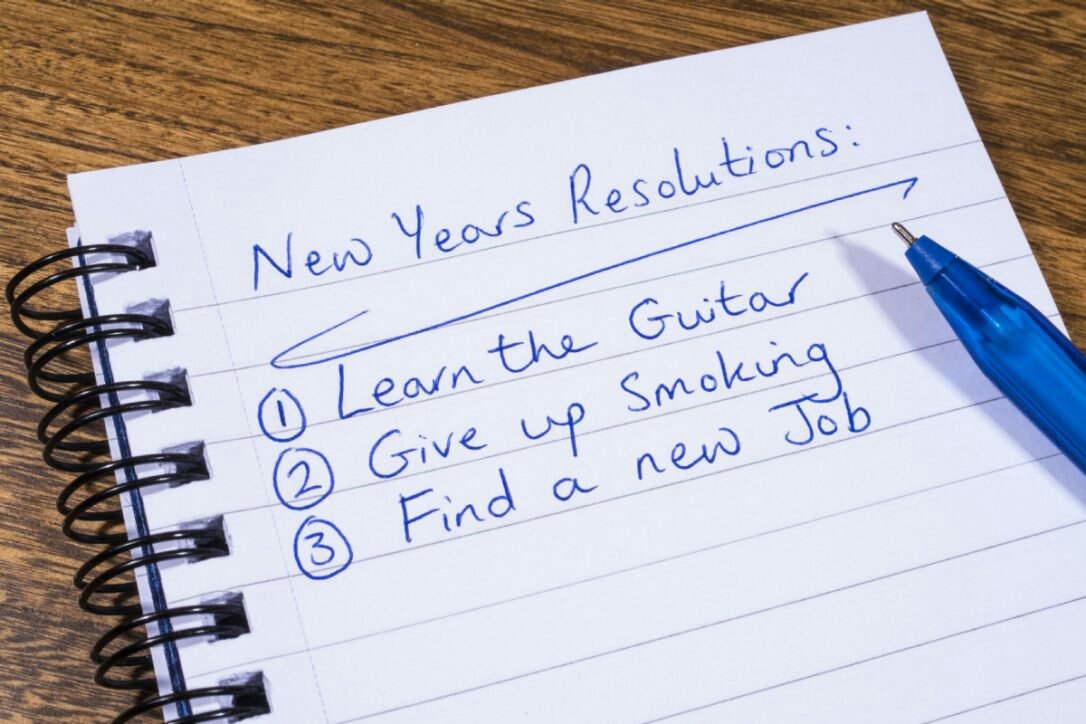 New Years Resolutions:
① Learn the Guitar
② Give up Smoking
③ Find a new Job